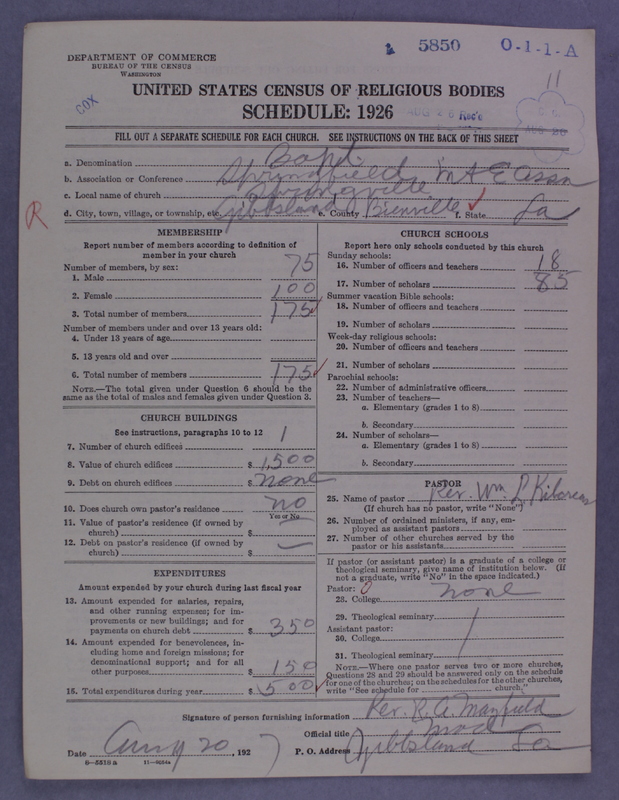 5850 O-1-1-A
DEPARTMENT OF COMMERCE
BUREAU OF THE CENSUS
WASHINGTON
11
UNITED STATES CENSUS OF RELIGIOUS BODIES
COX
SCHEDULE: 1926
Rec'd
FILL OUT A SEPARATE SCHEDULE FOR EACH CHURCH. SEE INSTRUCTIONS ON THE BACK OF THIS SHEET
a. Denomination Bapt.
b. Association or Conference Springfield M & E Assn
c. Local name of church Springville
d. City, town, village, or township, etc. Gibbsland e. County Bienville f. State La
R
MEMBERSHIP
Report number of members according to definition of
member in your church
Number of members, by sex:
1. Male 75
2. Female 100
3. Total number of members 175
Number of members under and over 13 years old:
4. Under 13 years of age
5. 13 years old and over
6. Total number of members 175
NOTE.—The total given under Question 6 should be the
same as the total of males and females given under Question 3.
CHURCH BUILDINGS
See instructions, paragraphs 10 to 12
7. Number of church edifices 1
8. Value of church edifices $ 1,500
9. Debt on church edifices $ none
10. Does church own pastor's residence no
Yes or No
11. Value of pastor's residence (if owned by
church) $
12. Debt on pastor's residence (if owned by
church) $ —
EXPENDITURES
Amount expended by your church during last fiscal year
13. Amount expended for salaries, repairs,
and other running expenses; for im-
provements or new buildings; and for
payments on church debt $ 350
14. Amount expended for benevolences, in-
cluding home and foreign missions; for
denominational support; and for all
other purposes $ 150
15. Total expenditures during year $ 500
CHURCH SCHOOLS
Report here only schools conducted by this church
Sunday schools:
16. Number of officers and teachers 18
17. Number of scholars 85
Summer vacation Bible schools:
18. Number of officers and teachers
19. Number of scholars
Week-day religious schools:
20. Number of officers and teachers
21. Number of scholars
Parochial schools:
22. Number of administrative officers
23. Number of teachers—
a. Elementary (grades 1 to 8)
b. Secondary
24. Number of scholars—
a. Elementary (grades 1 to 8)
b. Secondary
PASTOR
25. Name of pastor Rev. Wm.
(If church has no pastor, write "None")
26. Number of ordained ministers, if any, em-
ployed as assistant pastors
27. Number of other churches served by the
pastor or his assistants
If pastor (or assistant pastor) is a graduate of a college or
theological seminary, give name of institution below. (If
not a graduate, write "No" in the space indicated.)
Pastor: 0
28. College none
29. Theological seminary
Assistant pastor:
30. College
31. Theological seminary
NOTE.—Where one pastor serves two or more churches,
Questions 28 and 29 should be answered only on the schedule
for one of the churches; on the schedules for the other churches,
write "See schedule for church."
Signature of person furnishing information Rev. R. A. Manfield
Official title mod
Date Aug 20, 1927 P. O. Address Gibbsland La
8-5518a 11-9024a